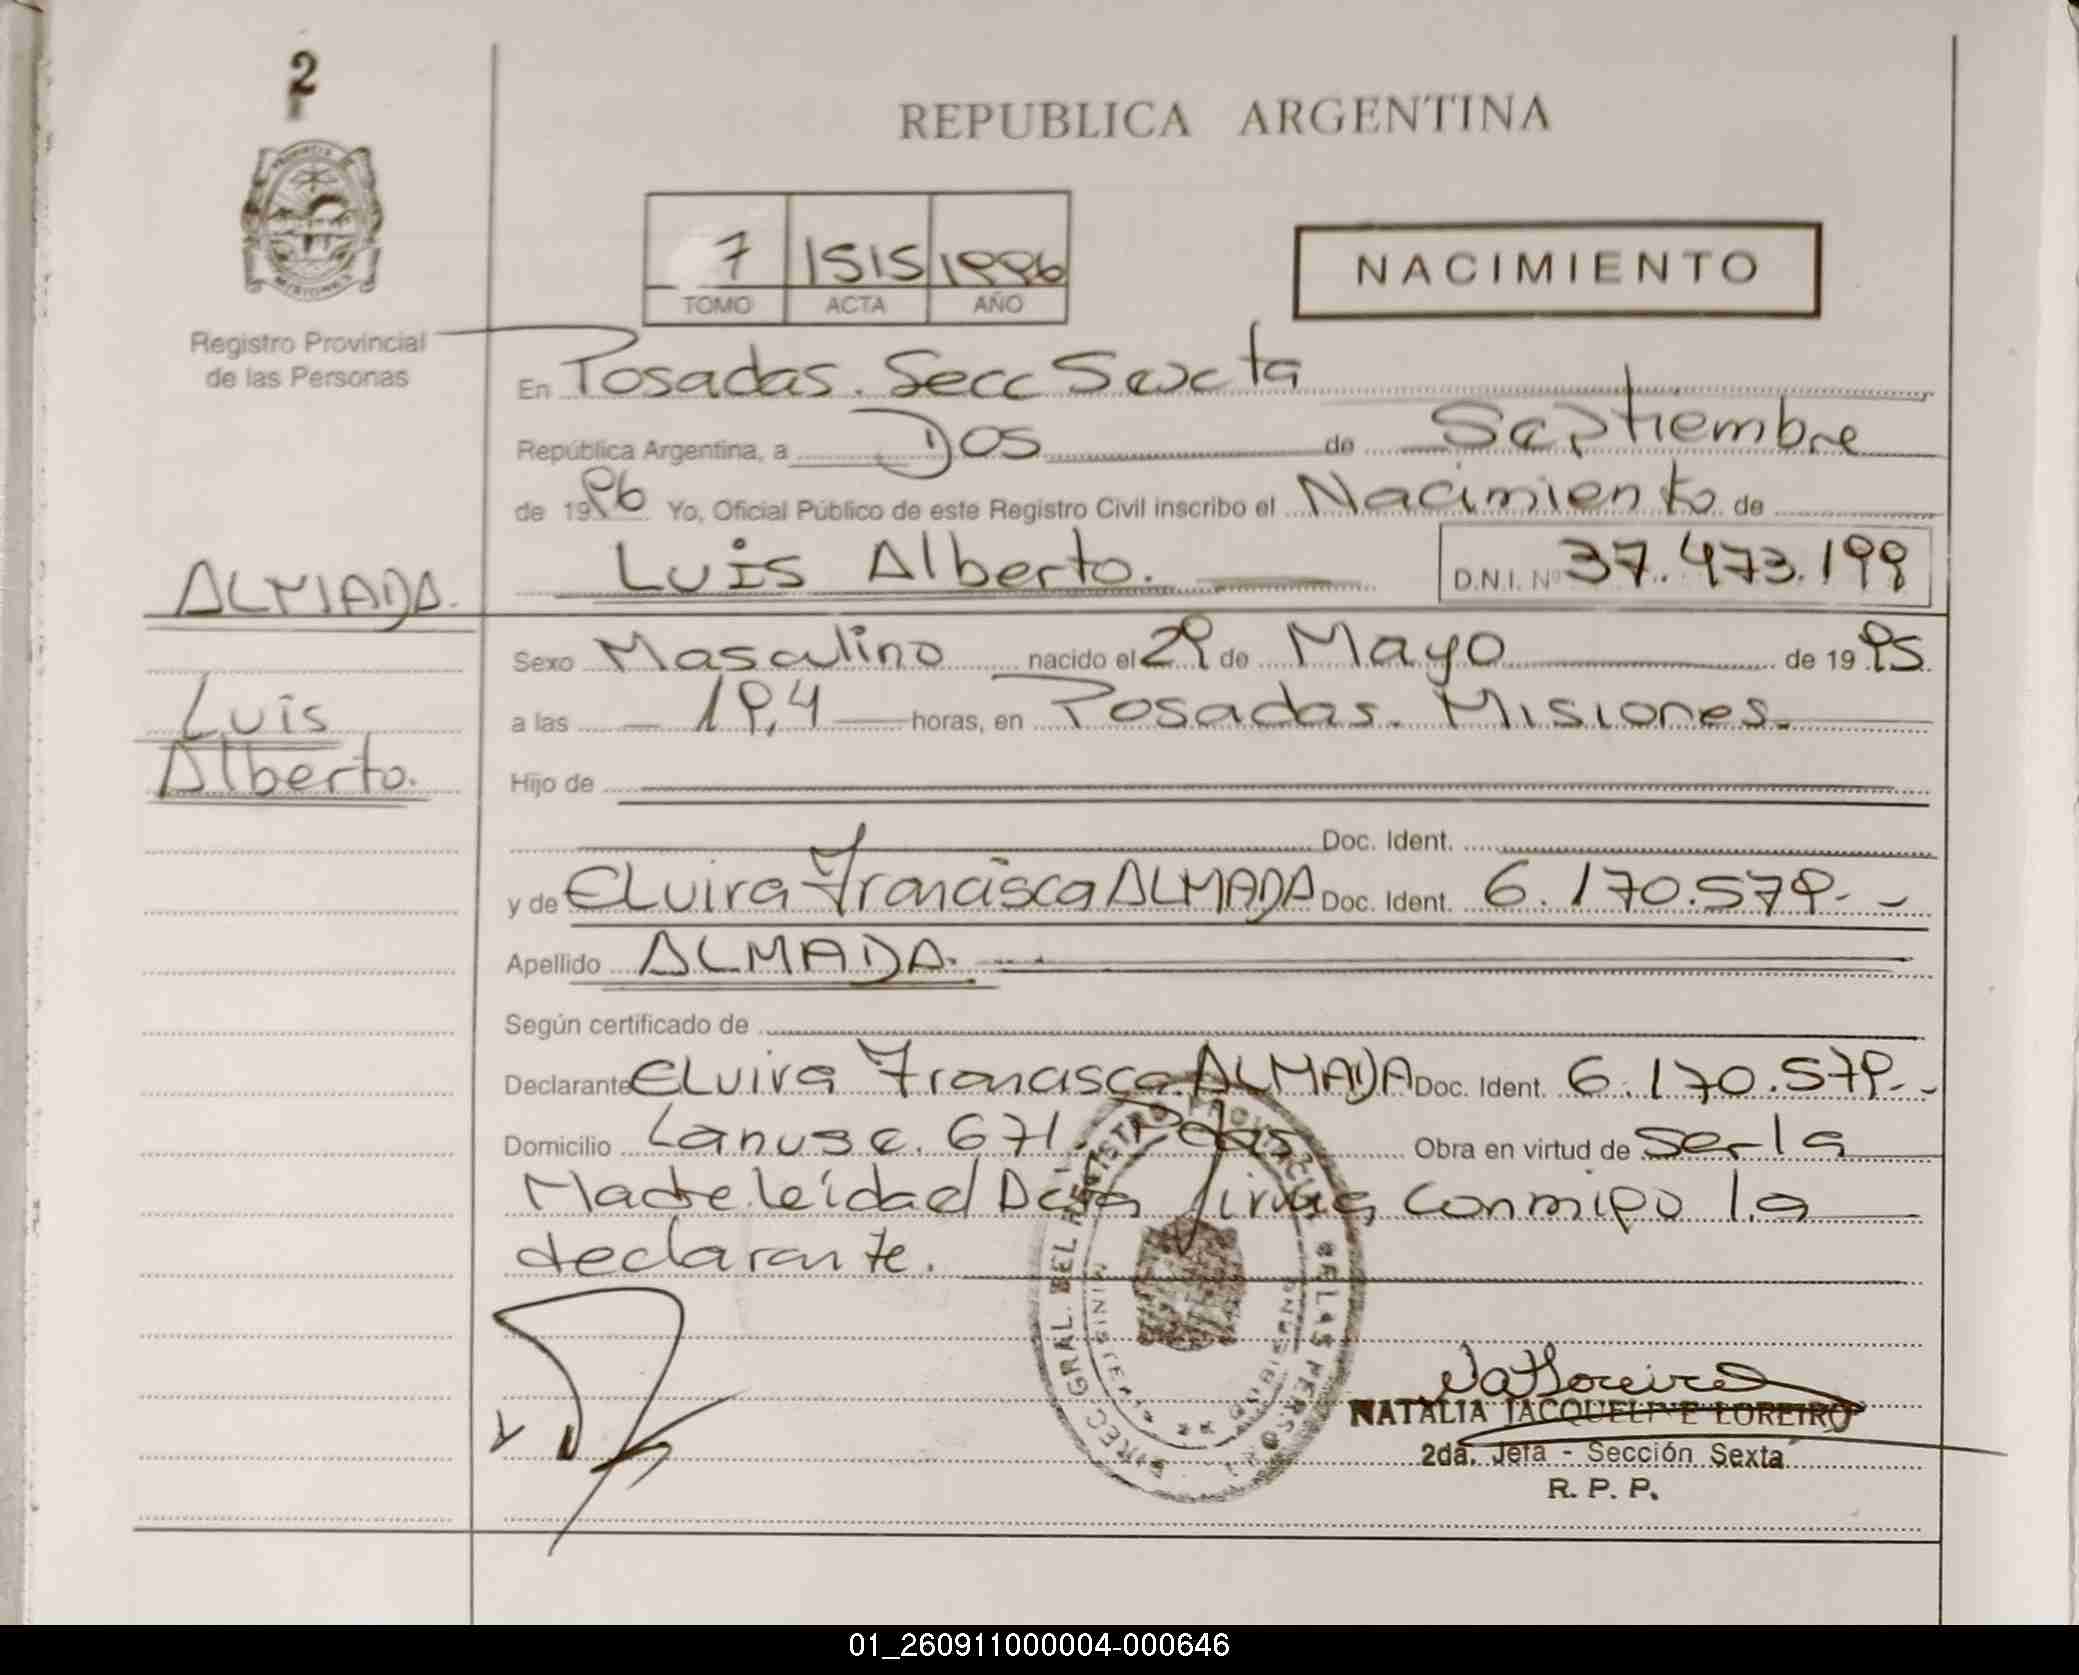 2
REPUBLICA ARGENTINA
7 1515 1996
TOMO ACTA AÑO
NACIMIENTO
Registro Provincial
de las Personas
En Posadas. Secc Sexta
República Argentina, a Dos de Septiembre
de 1996 Yo, Oficial Público de este Registro Civil inscribo el Nacimiento de
ALMADA. Luis Alberto. D.N.I. Nº 37.473.199
Sexo Masculino nacido el 29 de Mayo de 1995
Luis a las 19,4 horas, en Posadas. Misiones.
Alberto. Hijo de
Doc. Ident.
y de ELvira Francisca ALMADA Doc. Ident. 6.170.579.-
Apellido ALMADA.
Según certificado de
Declarante ELvira Francisca ALMADA Doc. Ident. 6.170.579.-
Domicilio Lanuse. 671. Pdas. Obra en virtud de ser la
Madre leídad firma conmigo la
declarante.
NATALIA JACQUELINE LOREIRO
2da. Jefa - Sección Sexta
R. P. P.
01_260911000004-000646